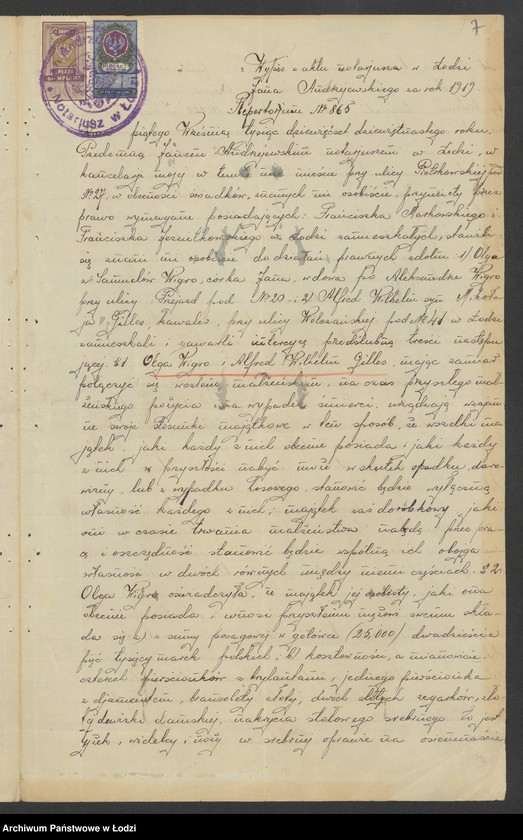 7
Wypis z aktu notarjusza w Łodzi
Jana Andrzejewskiego za rok 1919
Repertorium № 865
piątego Września tysiąc dziewięćset dziewiętnastego roku.
Przedemną Janem Andrzejewskim notarjuszem w Łodzi, w
kancelarji mojej w temże mieście przy ulicy Piotrkowskiej pod
№ 27, w obecności świadków, znanych mi osobiście, przymioty przez
prawo wymagane posiadających: Franciszka Markowskiego i
Franciszka w Łodzi zamieszkałych, stawili
się znani mi osobiście do działań prawnych zdolni 1/ Olga
z Wigro, córka Jana, wdowa po Aleksandrze Wigro
przy ulicy Przejazd pod № 20 i 2/ Alfred Wilhelm syn Mikoła
ja Gilles, kawaler, przy ulicy Wólczańskiej pod № 41 w Łodzi
zamieszkali i zawarli intercyzę przedślubną treści następu
jącej: § 1 Olga Wigro i Alfred Wilhelm Gilles, mając zamiar
połączyć się węzłem małżeńskim, na czas przyszłego mał
żeńskiego pożycia i na wypadek śmierci, urządzają wzajem
nie swoje stosunki majątkowe w ten sposób, że wszelki ma
jątek, jaki każdy z nich obecnie posiada i jaki każdy
z nich w przyszłości nabyć może w skutek spadku, daro
wizny, lub z wypadku losowego, stanowić będzie wyłączną
własność każdego z nich; majątek zaś dorobkowy, jaki
oni w czasie trwania małżeństwa nabędą przez pra-
cę i oszczędność stanowić będzie wspólną ich obojga
własność w dwóch równych między niemi częściach. § 2.
Olga Wigro oświadczyła, że majątek jej osobisty, jaki ona
obecnie posiada i wnosi przyszłemu mężowi swemu skła-
da się a/ z sumy posagowej w gotówce (25,000) dwadzieścia
pięć tysięcy marek polskich; b/ kosztowności, a mianowicie:
czterech pierścionków z brylantami, jednego pierścionka
z djamentem, bransolety złotej, dwóch złotych zegarków, zło
tej dewizki damskiej, nakrycia stołowego srebrnego to jest
łyżek, widelcy i noży w srebrnej oprawie na osiemnaście
Archiwum Państwowe w Łodzi